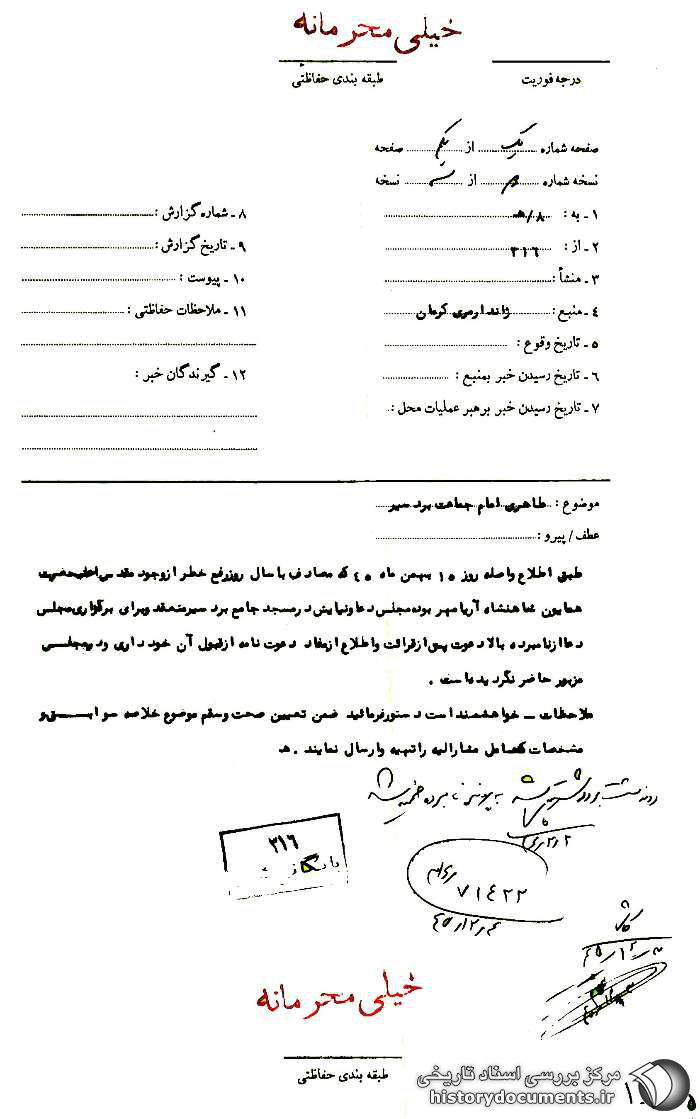 خیلی محرمانه
درجه فوریت
طبقه بندی حفاظتی
صفحه شماره یک از یک صفحه
نسخه شماره از سه نسخه
۱ـ به : ۸/هـ
۲ـ از : ۳۱۶
۳ـ منشأ :
۴ـ منبع : ژاندارمری کرمان
۵ـ تاریخ وقوع :
۶ـ تاریخ رسیدن خبر بمنبع :
۷ـ تاریخ رسیدن خبر برهبر عملیات محل :
۸ـ شماره گزارش :
۹ـ تاریخ گزارش :
۱۰ـ پیوست :
۱۱ـ ملاحظات حفاظتی :
۱۲ـ گیرندگان خبر :
موضوع : طاهری امام جماعت برد سیر
عطف/پیرو :
طبق اطلاع واصله روز ۱۵ بهمن ماه ۴۵ که مصادف با سال روز رفع خطر از وجود مقدس اعلیحضرت
همایون شاهنشاه آریامهر بوده مجلس دعا و نیایش در مسجد جامع برد سیر منعقد و برای برگزاری مجلس
دعا از نامبرده بالا دعوت پس از قرائت و اطلاع از مفاد دعوت نامه از قبول آن خود داری و در مجلس
مزبور حاضر نگردیده است .
ملاحظات ـ خواهشمند است دستور فرمائید ضمن تعیین صحت و سقم موضوع خلاصه سوابق و
مشخصات کامل مشارالیه را تهیه و ارسال نمایند . هـ
۳۱۶
بایگانی
۷۱۴۲۲
خیلی محرمانه
طبقه بندی حفاظتی
مرکز بررسی اسناد تاریخی
historydocuments.ir